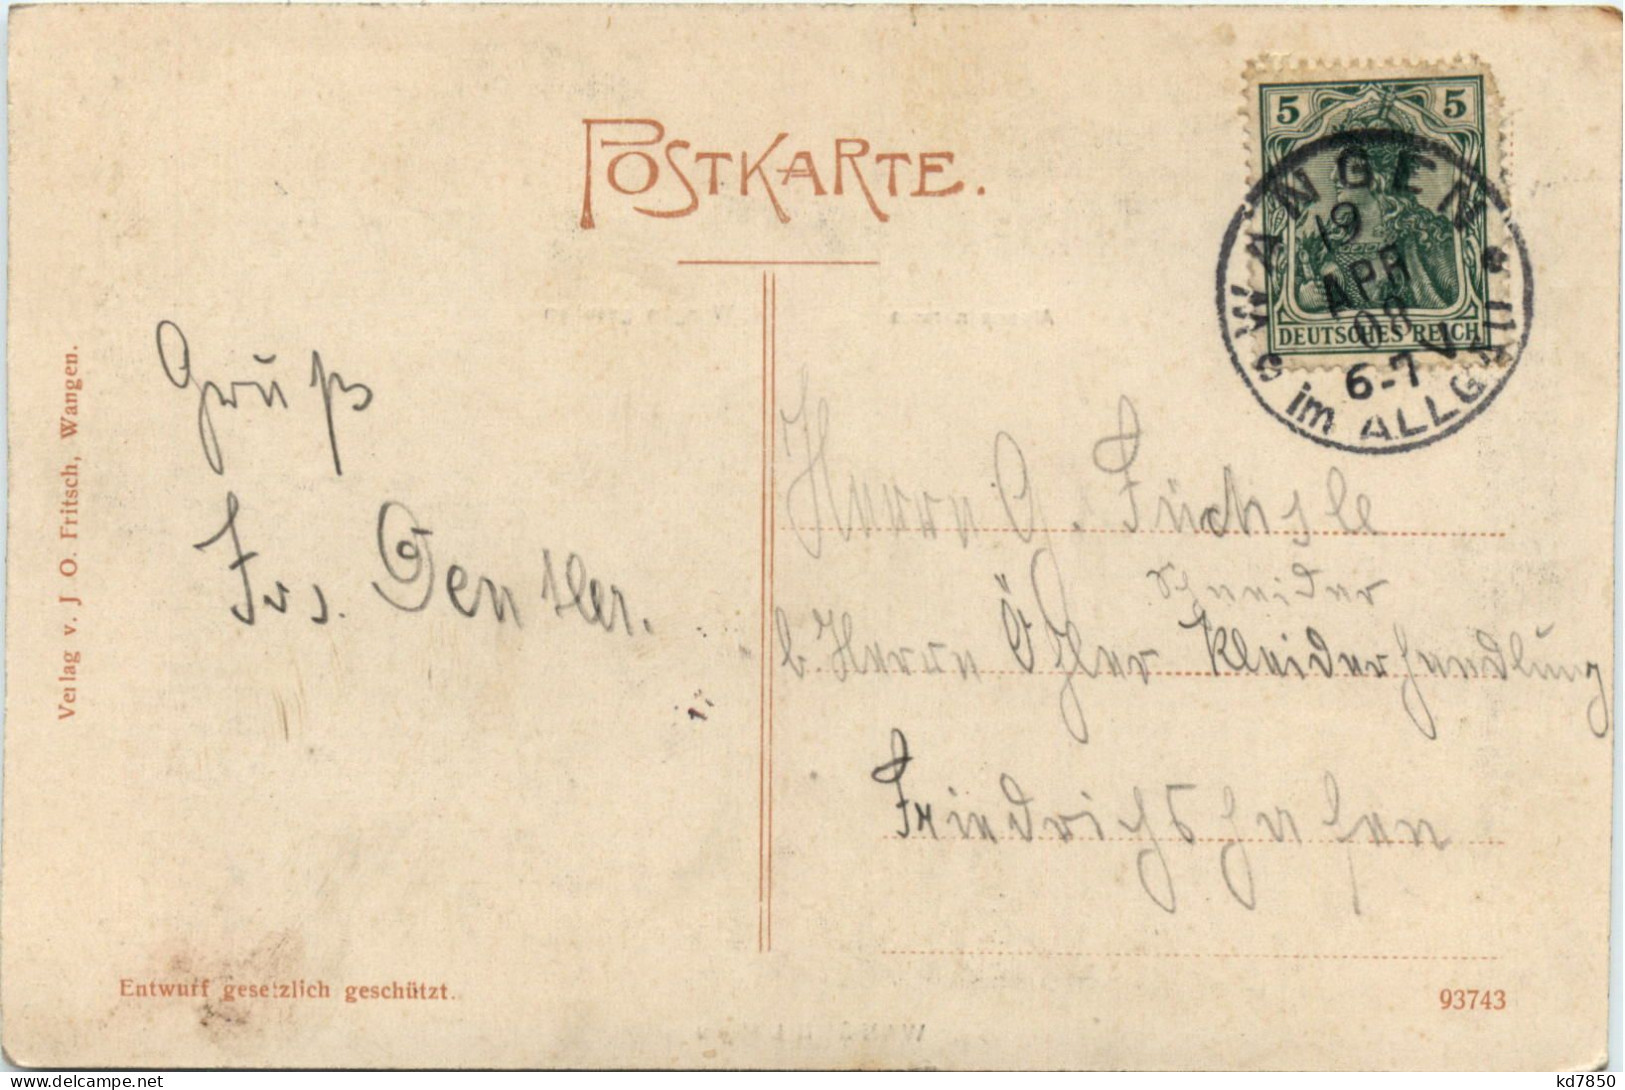 POSTKARTE.
5 5
DEUTSCHES REICH
WANGEN im ALLGÄU
19
APR
08
6-7V
Verlag v. J O. Fritsch, Wangen.
Gruß
Jos. Gentler.
Herrn G. Füchsle
Schneider
b. Herrn Öhler Kleiderhandlung
Friedrichshafen
Entwurf gesetzlich geschützt.
93743
kd7850